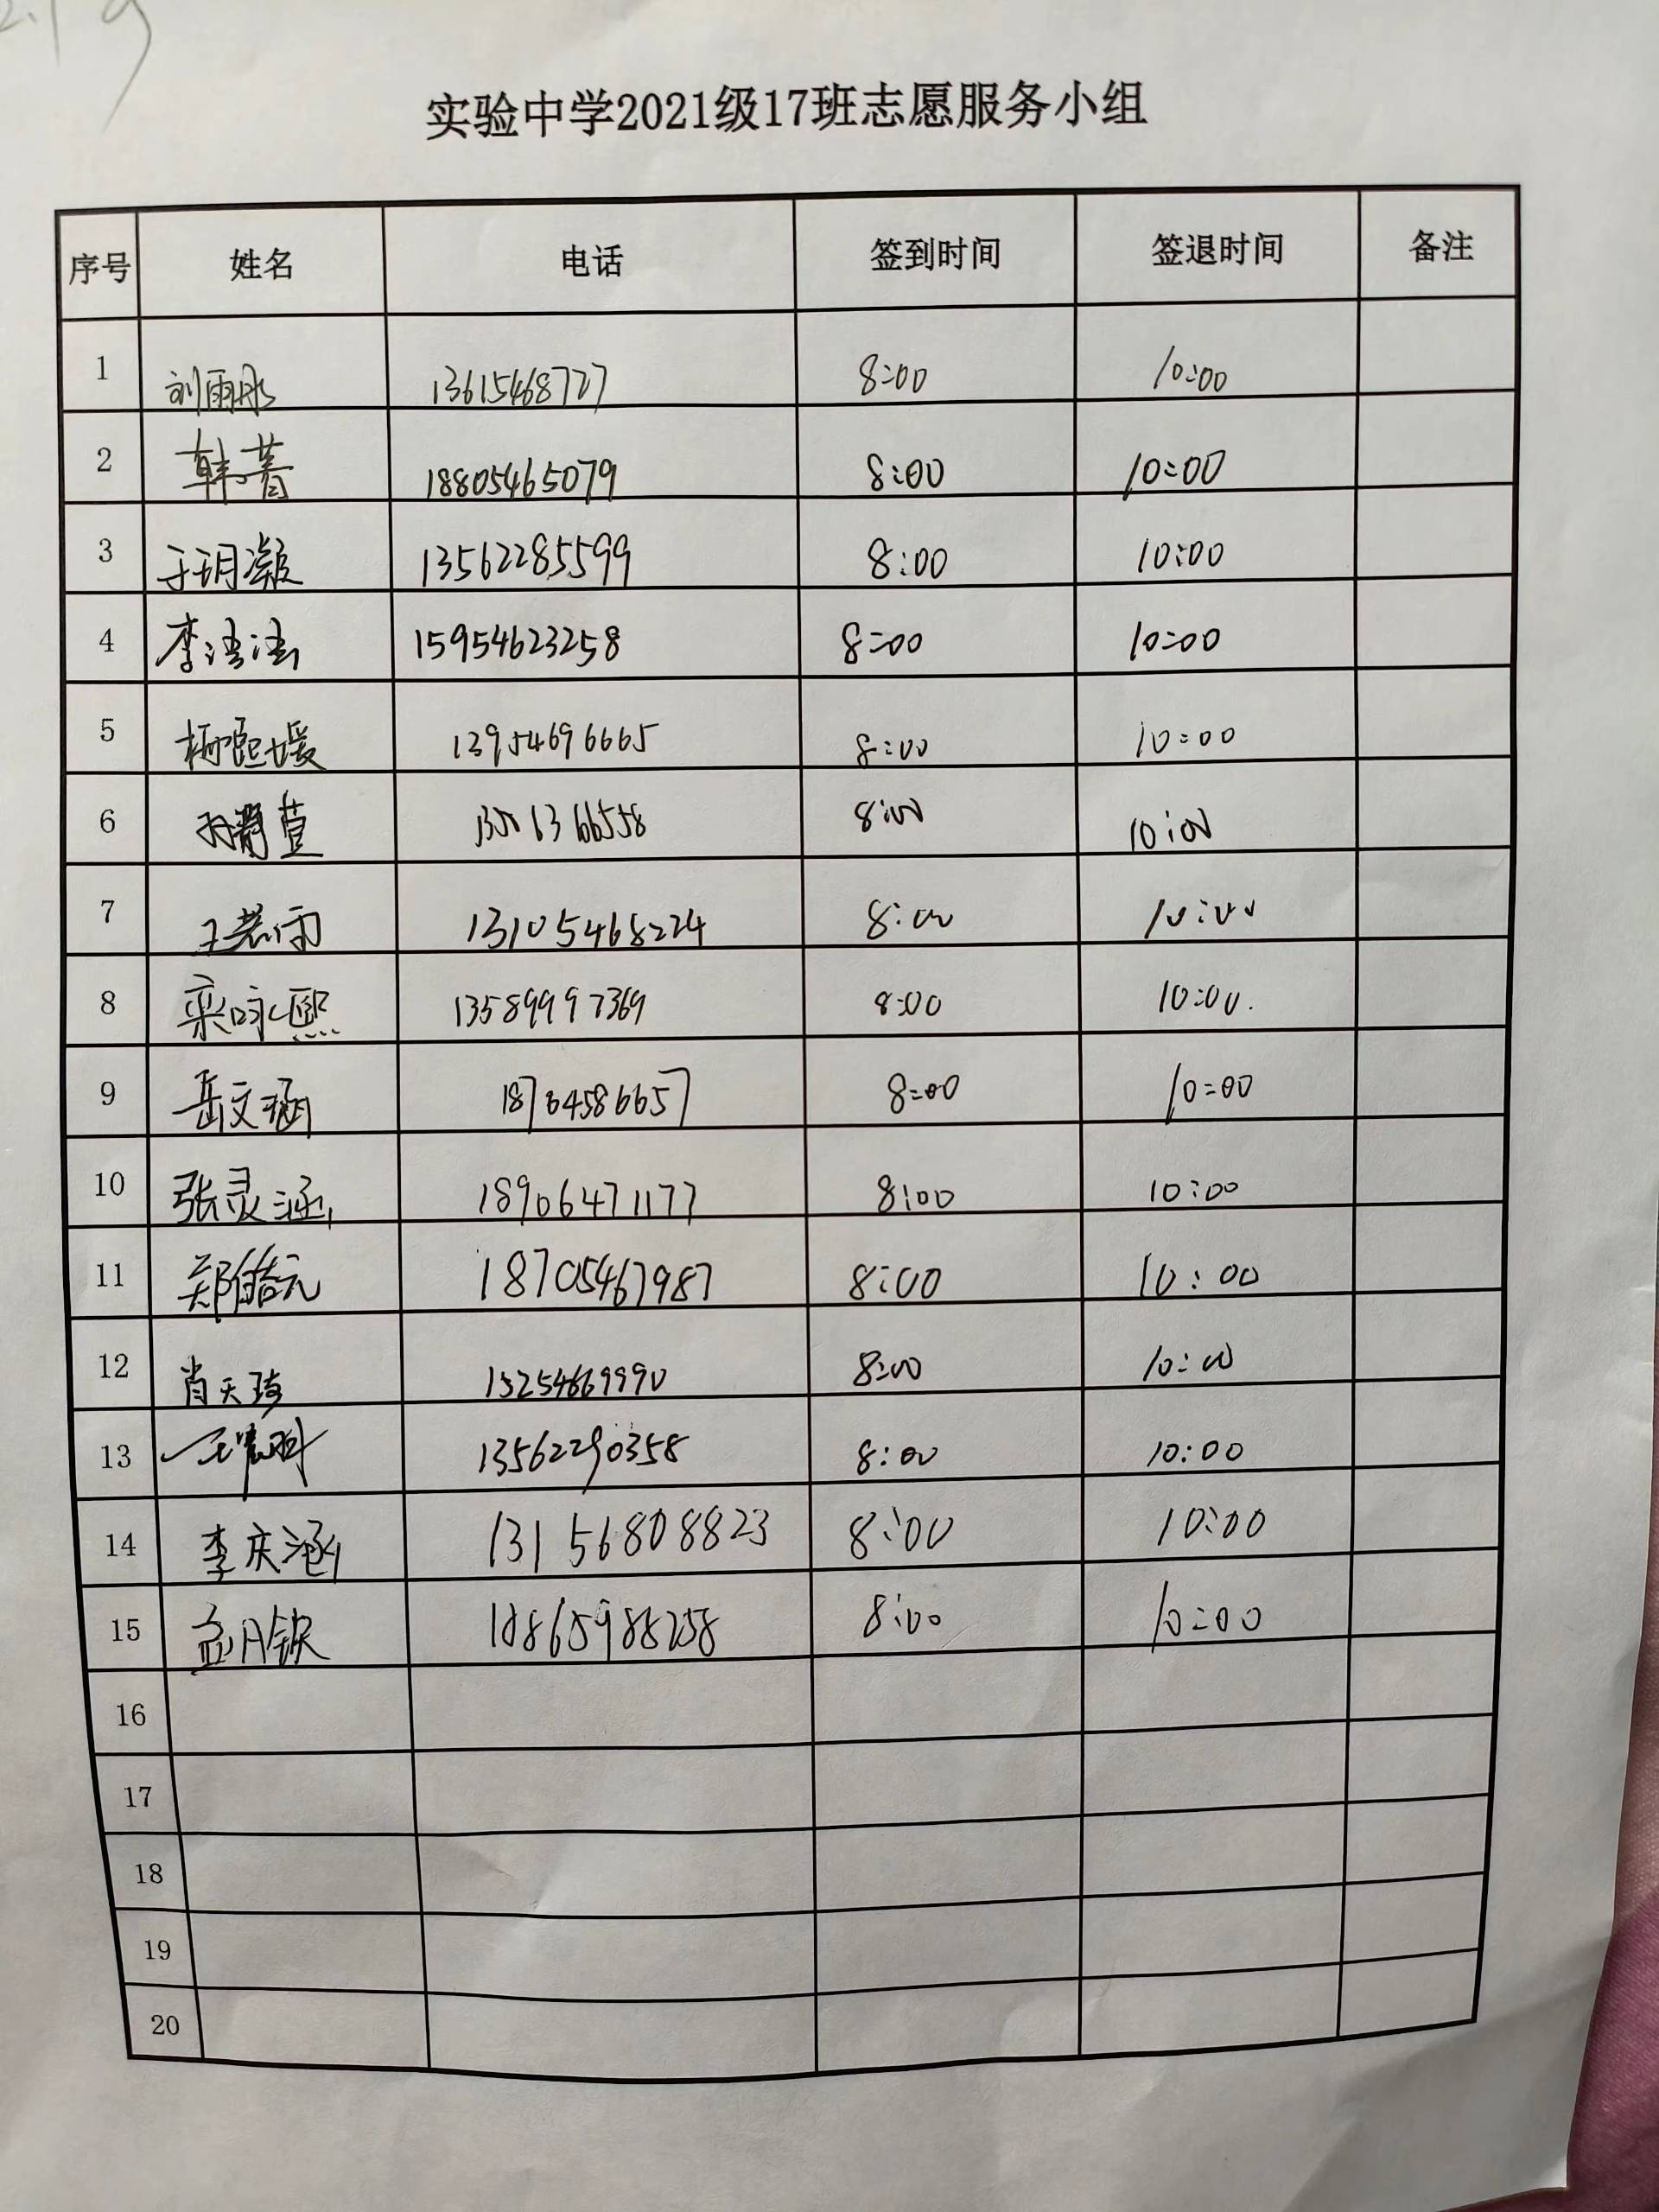 2.19
实验中学2021级17班志愿服务小组
序号 姓名 电话 签到时间 签退时间 备注
1 刘雨彤 13615468727 8:00 10:00
2 韩菁 18805465079 8:00 10:00
3 于玥凝 13562285599 8:00 10:00
4 李洁洁 15954623258 8:00 10:00
5 杨熙媛 13954696665 8:00 10:00
6 孙静萱 8:00 10:00
7 王若雨 13105468224 8:00 10:00
8 栾咏熙 13589997369 8:00 10:00.
9 岳文涵 18764586657 8:00 10:00
10 张灵涵 18906471177 8:00 10:00
11 郑皓元 18705467987 8:00 10:00
12 肖天琦 15254669990 8:00 10:00
13 13562290358 8:00 10:00
14 李庆涵 13156808823 8:00 10:00
15 孟月钦 18865988258 8:00 10:00
16
17
18
19
20